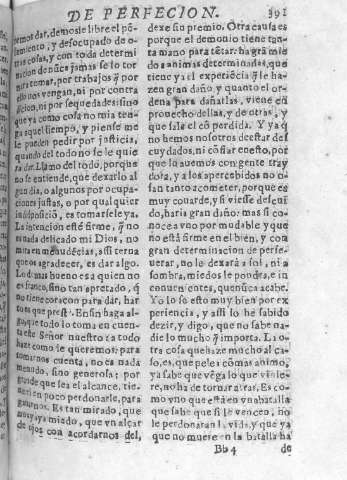 DE PERFECION. 391
remos dar, demosle libre el pẽ-
samiento, y desocupado de o-
tras cosas, y con toda determi
nacion de nũca jamas se lo tor
nar a tomar, por trabajos q̃ por
ello nos vengan, ni por contra
dicion, ni por sequedades: sino
que ya como cosa no mia ten-
ga aquel tiempo, y piense me
le pueden pedir por justicia,
quando del todo no se le quie
ra dar. Llamo del todo, porque
no se entiende, que dexarlo al
gun dia, o algunos por ocupa
ciones justas, o por qualquier
indisposiciõ, es tomarsele ya.
La intencion esté firme, q̃ no
es nada delicado mi Dios, no
mira en menudẽcias, assi terna
que os agradecer, es dar algo.
Lo demas bueno es a quien no
es franco, sino tan apretado, q̃
no tiene coraçon para dar, har
to es que preste. En fin haga al-
go, que todo lo toma en cuen-
ta este Señor nuestro: a todo
haze como le queremos: para
tomarnos cuenta, no es nada
menudo, sino generoso; por
grande que sea el alcance, tie-
ne en poco perdonarle, para
ganarnos. Es tan mirado, que
no ayays miedo, que vn alçar
de ojos con acordarnos del,
dexe sin premio. Otra causa es
porque el demonio tiene tan
ta mano para tẽtar: ha grã mie
do a animas determinadas, que
tiene ya el experiẽcia q̃ le ha-
zen gran daño, y quanto el or-
dena para dañarlas, viene en
prouecho dellas, y de otras, y
que sale el cõ perdida. Y ya q̃
no hemos nosotros de estar des
cuydados, ni cõfiar en esto, por
que lo auemos con gente tray
dora, y a los apercebidos no o-
san tanto acometer, porque es
muy couarde, y si viesse descuy
do, haria gran daño: mas si co-
noce a vno por mudable y que
no está firme en el bien, y con
gran determinacion de perse-
uerar, no le dexará a sol, ni a
sombra, miedos le pondra, e in
conuenientes, que nũca acabe.
Yo lo se esto muy bien por ex
periencia, y assi lo he sabido
dezir, y digo, que no sabe na-
die lo mucho q̃ importa. La o-
tra cosa que haze mucho al ca-
so, es, que pelea cõ mas animo,
ya sabe que vẽga lo que vinie-
re, no ha de tornar atras. Es co-
mo vno que está en vna batalla
que sabe que si le vencen, no
le perdonaran la vida, y que ya
que no muere en la batalla ha
Bb 4 de